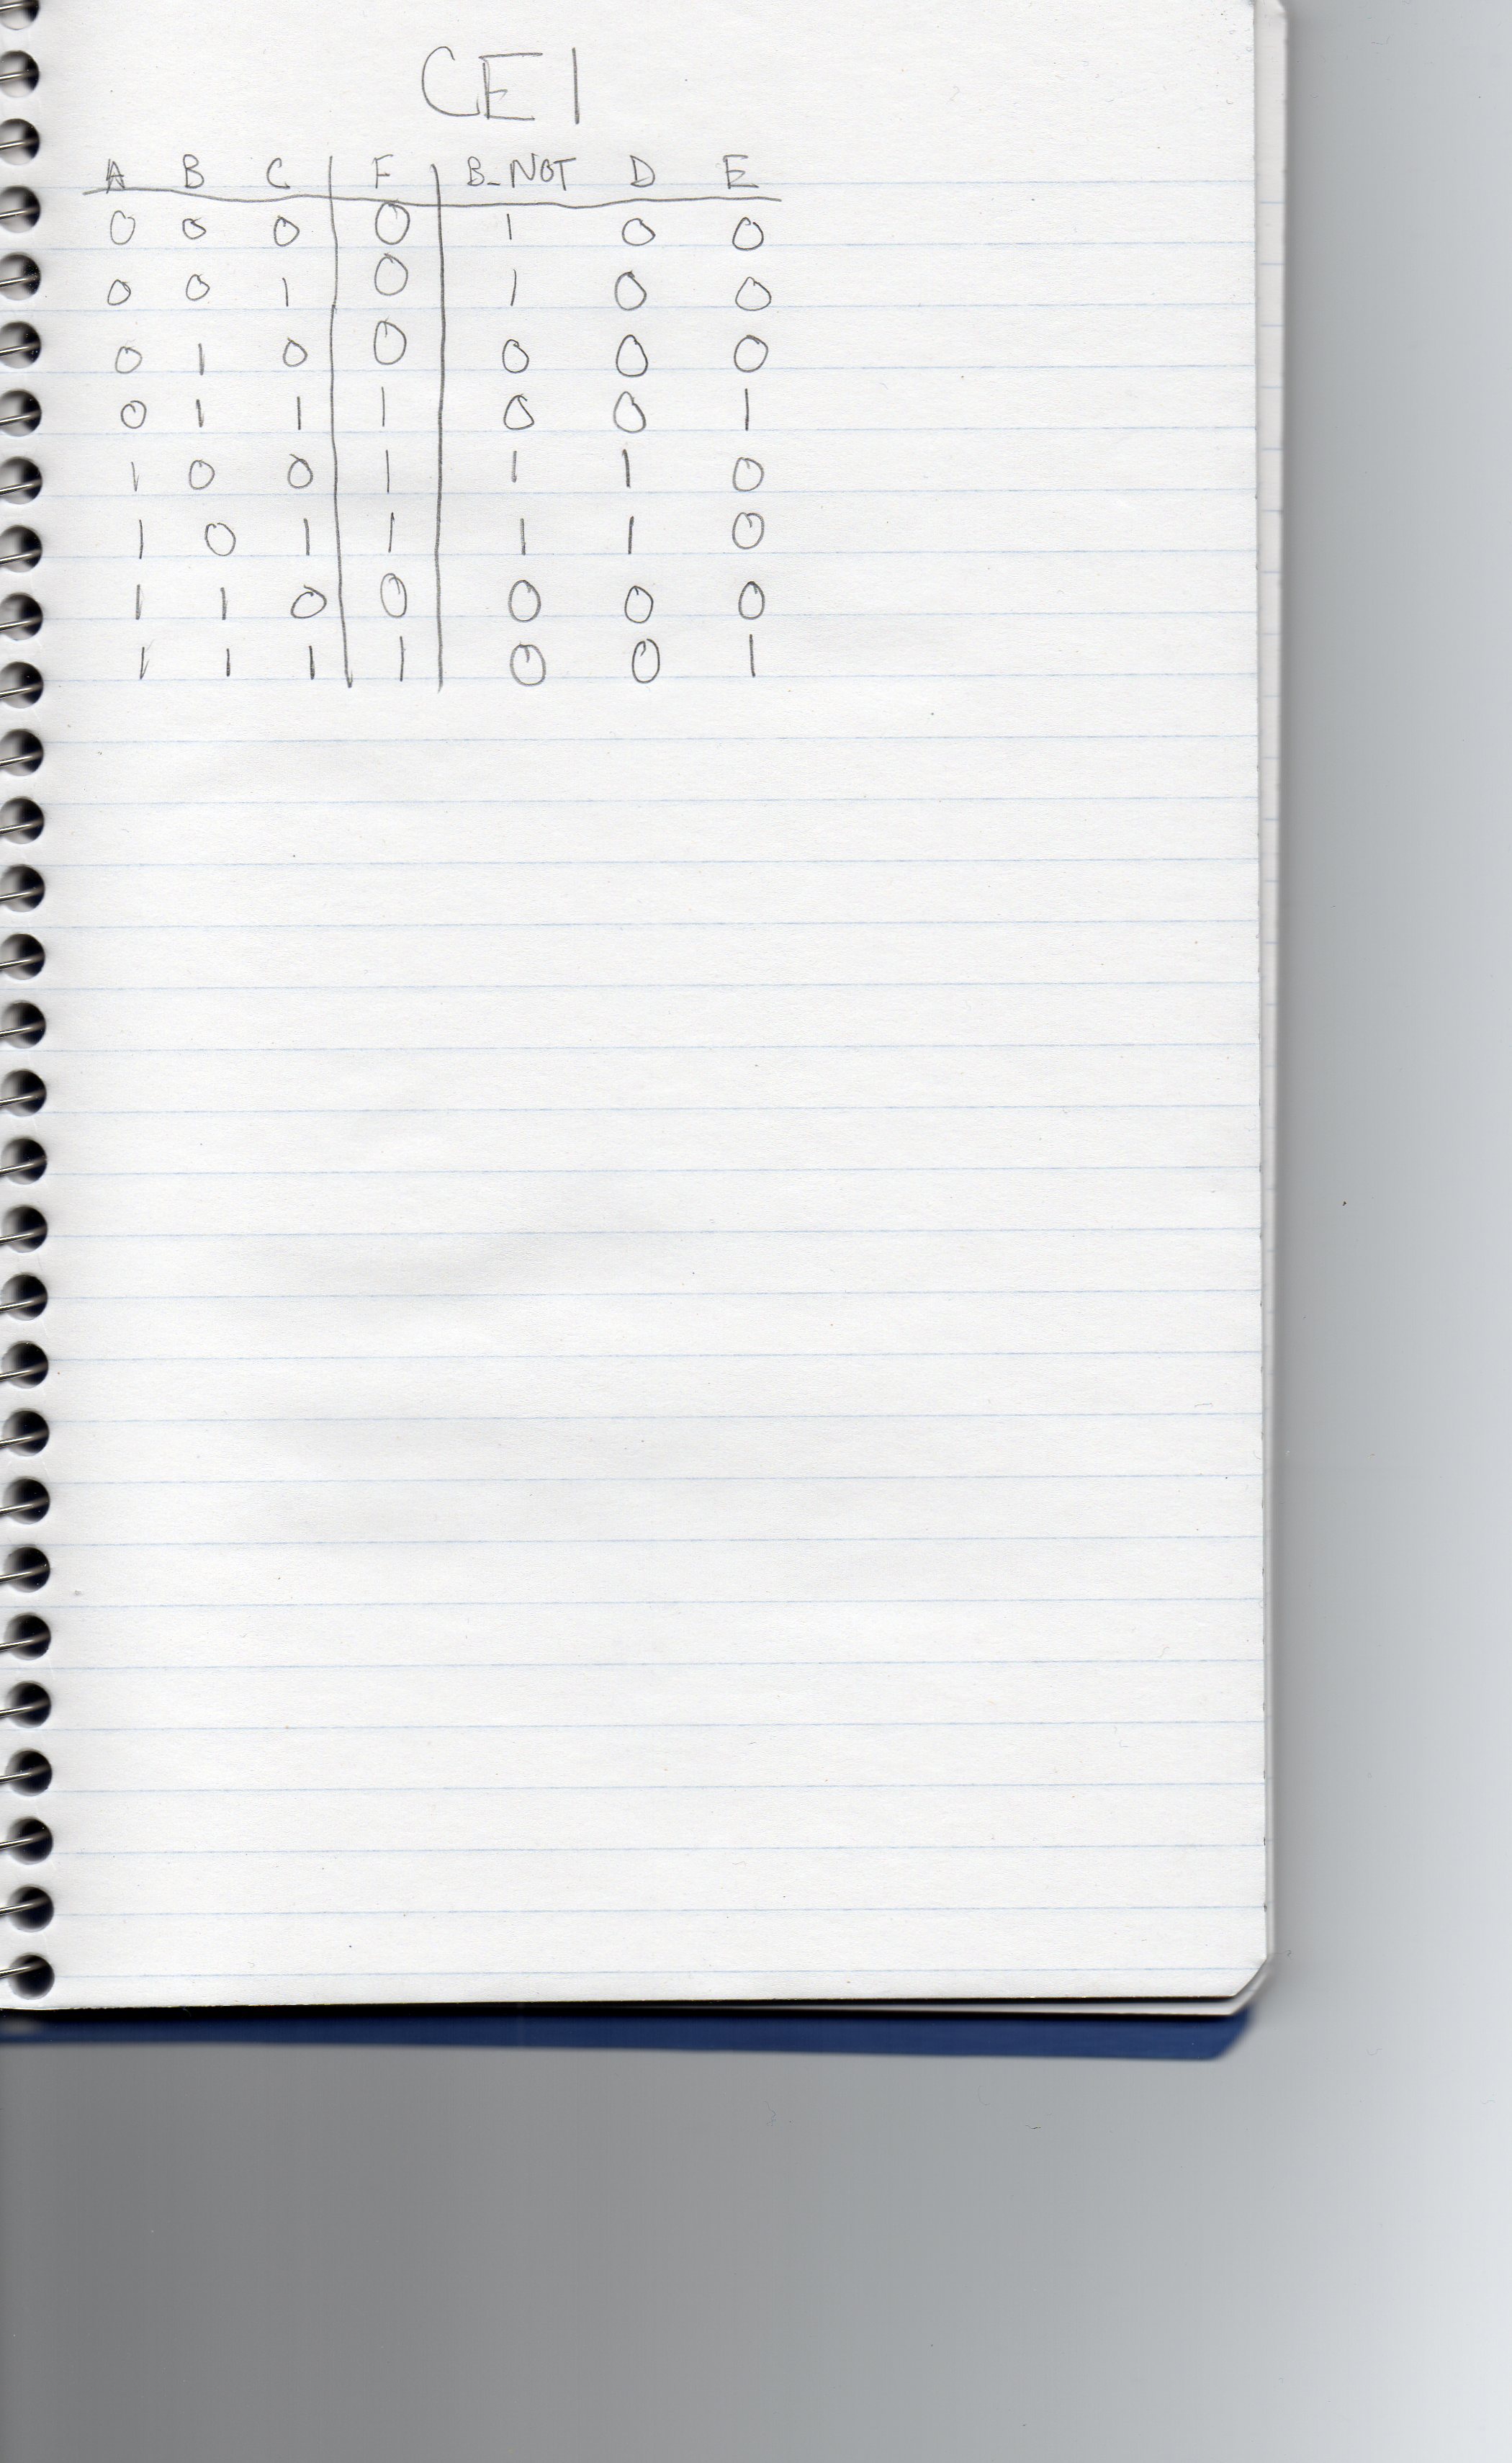 CE1
A B C F B_NOT D E
0 0 0 0 1 0 0
0 0 1 0 1 0 0
0 1 0 0 0 0 0
0 1 1 1 0 0 1
1 0 0 1 1 1 0
1 0 1 1 1 1 0
1 1 0 0 0 0 0
1 1 1 1 0 0 1